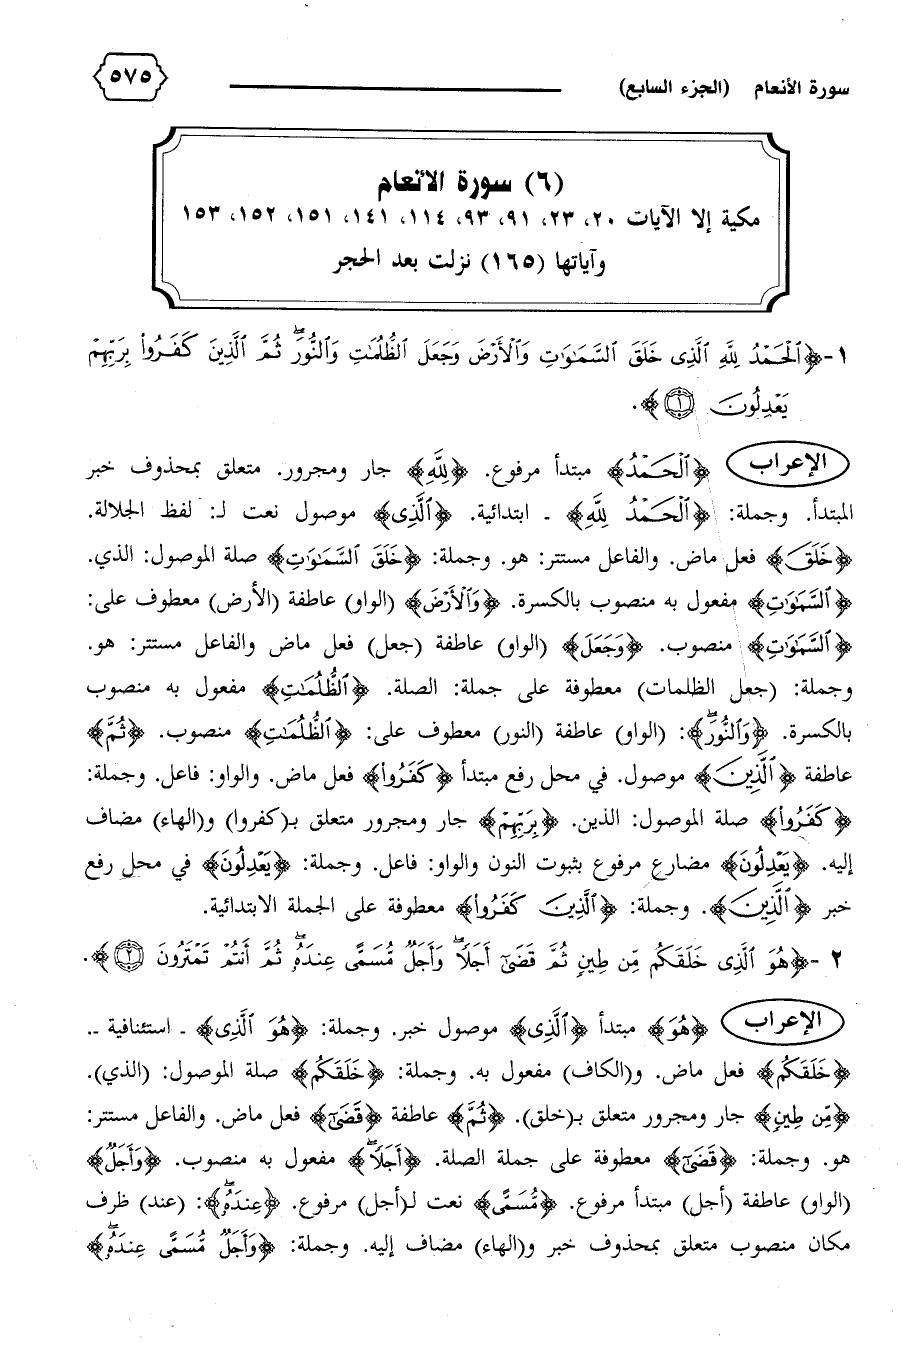 سورة الأنعام (الجزء السابع) ٥٧٥
(٦) سورة الأنعام
مكية إلا الآيات ٢٠، ٢٣، ٩١، ٩٣، ١١٤، ١٤١، ١٥١، ١٥٢، ١٥٣
وآياتها (١٦٥) نزلت بعد الحجر
١ - ﴿ٱلْحَمْدُ لِلَّهِ ٱلَّذِى خَلَقَ ٱلسَّمَٰوَٰتِ وَٱلْأَرْضَ وَجَعَلَ ٱلظُّلُمَٰتِ وَٱلنُّورَ ۖ ثُمَّ ٱلَّذِينَ كَفَرُوا۟ بِرَبِّهِمْ
يَعْدِلُونَ ۝١﴾.
الإعراب ﴿ٱلْحَمْدُ﴾ مبتدأ مرفوع. ﴿لِلَّهِ﴾ جار ومجرور. متعلق بمحذوف خبر
المبتدأ. وجملة: ﴿ٱلْحَمْدُ لِلَّهِ﴾ ـ ابتدائية. ﴿ٱلَّذِى﴾ موصول نعت لـ: لفظ الجلالة.
﴿خَلَقَ﴾ فعل ماض. والفاعل مستتر: هو. وجملة: ﴿خَلَقَ ٱلسَّمَٰوَٰتِ﴾ صلة الموصول: الذي.
﴿ٱلسَّمَٰوَٰتِ﴾ مفعول به منصوب بالكسرة. ﴿وَٱلْأَرْضَ﴾ (الواو) عاطفة (الأرض) معطوف على:
﴿ٱلسَّمَٰوَٰتِ﴾ منصوب. ﴿وَجَعَلَ﴾ (الواو) عاطفة (جعل) فعل ماض والفاعل مستتر: هو.
وجملة: (جعل الظلمات) معطوفة على جملة: الصلة. ﴿ٱلظُّلُمَٰتِ﴾ مفعول به منصوب
بالكسرة. ﴿وَٱلنُّورَ ۖ﴾: (الواو) عاطفة (النور) معطوف على: ﴿ٱلظُّلُمَٰتِ﴾ منصوب. ﴿ثُمَّ﴾
عاطفة ﴿ٱلَّذِينَ﴾ موصول. في محل رفع مبتدأ ﴿كَفَرُوا۟﴾ فعل ماض. والواو: فاعل. وجملة:
﴿كَفَرُوا۟﴾ صلة الموصول: الذين. ﴿بِرَبِّهِمْ﴾ جار ومجرور متعلق بـ(كفروا) و(الهاء) مضاف
إليه. ﴿يَعْدِلُونَ﴾ مضارع مرفوع بثبوت النون والواو: فاعل. وجملة: ﴿يَعْدِلُونَ﴾ في محل رفع
خبر ﴿ٱلَّذِينَ﴾. وجملة: ﴿ٱلَّذِينَ كَفَرُوا۟﴾ معطوفة على الجملة الابتدائية.
٢ - ﴿هُوَ ٱلَّذِى خَلَقَكُم مِّن طِينٍ ثُمَّ قَضَىٰٓ أَجَلًا ۖ وَأَجَلٌ مُّسَمًّى عِندَهُۥ ۖ ثُمَّ أَنتُمْ تَمْتَرُونَ ۝٢﴾.
الإعراب ﴿هُوَ﴾ مبتدأ ﴿ٱلَّذِى﴾ موصول خبر. وجملة: ﴿هُوَ ٱلَّذِى﴾ ـ استئنافية ـ.
﴿خَلَقَكُم﴾ فعل ماض. و(الكاف) مفعول به. وجملة: ﴿خَلَقَكُم﴾ صلة الموصول: (الذي).
﴿مِّن طِينٍ﴾ جار ومجرور متعلق بـ(خلق). ﴿ثُمَّ﴾ عاطفة ﴿قَضَىٰٓ﴾ فعل ماض. والفاعل مستتر:
هو. وجملة: ﴿قَضَىٰٓ﴾ معطوفة على جملة الصلة. ﴿أَجَلًا ۖ﴾ مفعول به منصوب. ﴿وَأَجَلٌ﴾
(الواو) عاطفة (أجل) مبتدأ مرفوع. ﴿مُّسَمًّى﴾ نعت لـ(أجل) مرفوع. ﴿عِندَهُۥ ۖ﴾: (عند) ظرف
مكان منصوب متعلق بمحذوف خبر و(الهاء) مضاف إليه. وجملة: ﴿وَأَجَلٌ مُّسَمًّى عِندَهُۥ ۖ﴾